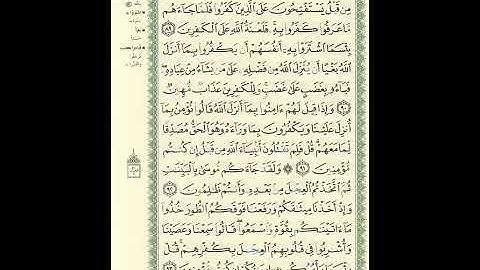 مِن قَبْلُ يَسْتَفْتِحُونَ عَلَى ٱلَّذِينَ كَفَرُوا۟ فَلَمَّا جَآءَهُم
مَّا عَرَفُوا۟ كَفَرُوا۟ بِهِۦ ۚ فَلَعْنَةُ ٱللَّهِ عَلَى ٱلْكَٰفِرِينَ ٨٩
بِئْسَمَا ٱشْتَرَوْا۟ بِهِۦٓ أَنفُسَهُمْ أَن يَكْفُرُوا۟ بِمَآ أَنزَلَ
ٱللَّهُ بَغْيًا أَن يُنَزِّلَ ٱللَّهُ مِن فَضْلِهِۦ عَلَىٰ مَن يَشَآءُ مِنْ عِبَادِهِۦ ۖ
فَبَآءُو بِغَضَبٍ عَلَىٰ غَضَبٍ ۚ وَلِلْكَٰفِرِينَ عَذَابٌ مُّهِينٌ
٩٠ وَإِذَا قِيلَ لَهُمْ ءَامِنُوا۟ بِمَآ أَنزَلَ ٱللَّهُ قَالُوا۟ نُؤْمِنُ بِمَآ
أُنزِلَ عَلَيْنَا وَيَكْفُرُونَ بِمَا وَرَآءَهُۥ وَهُوَ ٱلْحَقُّ مُصَدِّقًا
لِّمَا مَعَهُمْ ۗ قُلْ فَلِمَ تَقْتُلُونَ أَنۢبِيَآءَ ٱللَّهِ مِن قَبْلُ إِن كُنتُم
مُّؤْمِنِينَ ٩١ ۞ وَلَقَدْ جَآءَكُم مُّوسَىٰ بِٱلْبَيِّنَٰتِ
ثُمَّ ٱتَّخَذْتُمُ ٱلْعِجْلَ مِنۢ بَعْدِهِۦ وَأَنتُمْ ظَٰلِمُونَ ٩٢
وَإِذْ أَخَذْنَا مِيثَٰقَكُمْ وَرَفَعْنَا فَوْقَكُمُ ٱلطُّورَ خُذُوا۟
مَآ ءَاتَيْنَٰكُم بِقُوَّةٍ وَٱسْمَعُوا۟ ۖ قَالُوا۟ سَمِعْنَا وَعَصَيْنَا
وَأُشْرِبُوا۟ فِى قُلُوبِهِمُ ٱلْعِجْلَ بِكُفْرِهِمْ ۚ قُلْ